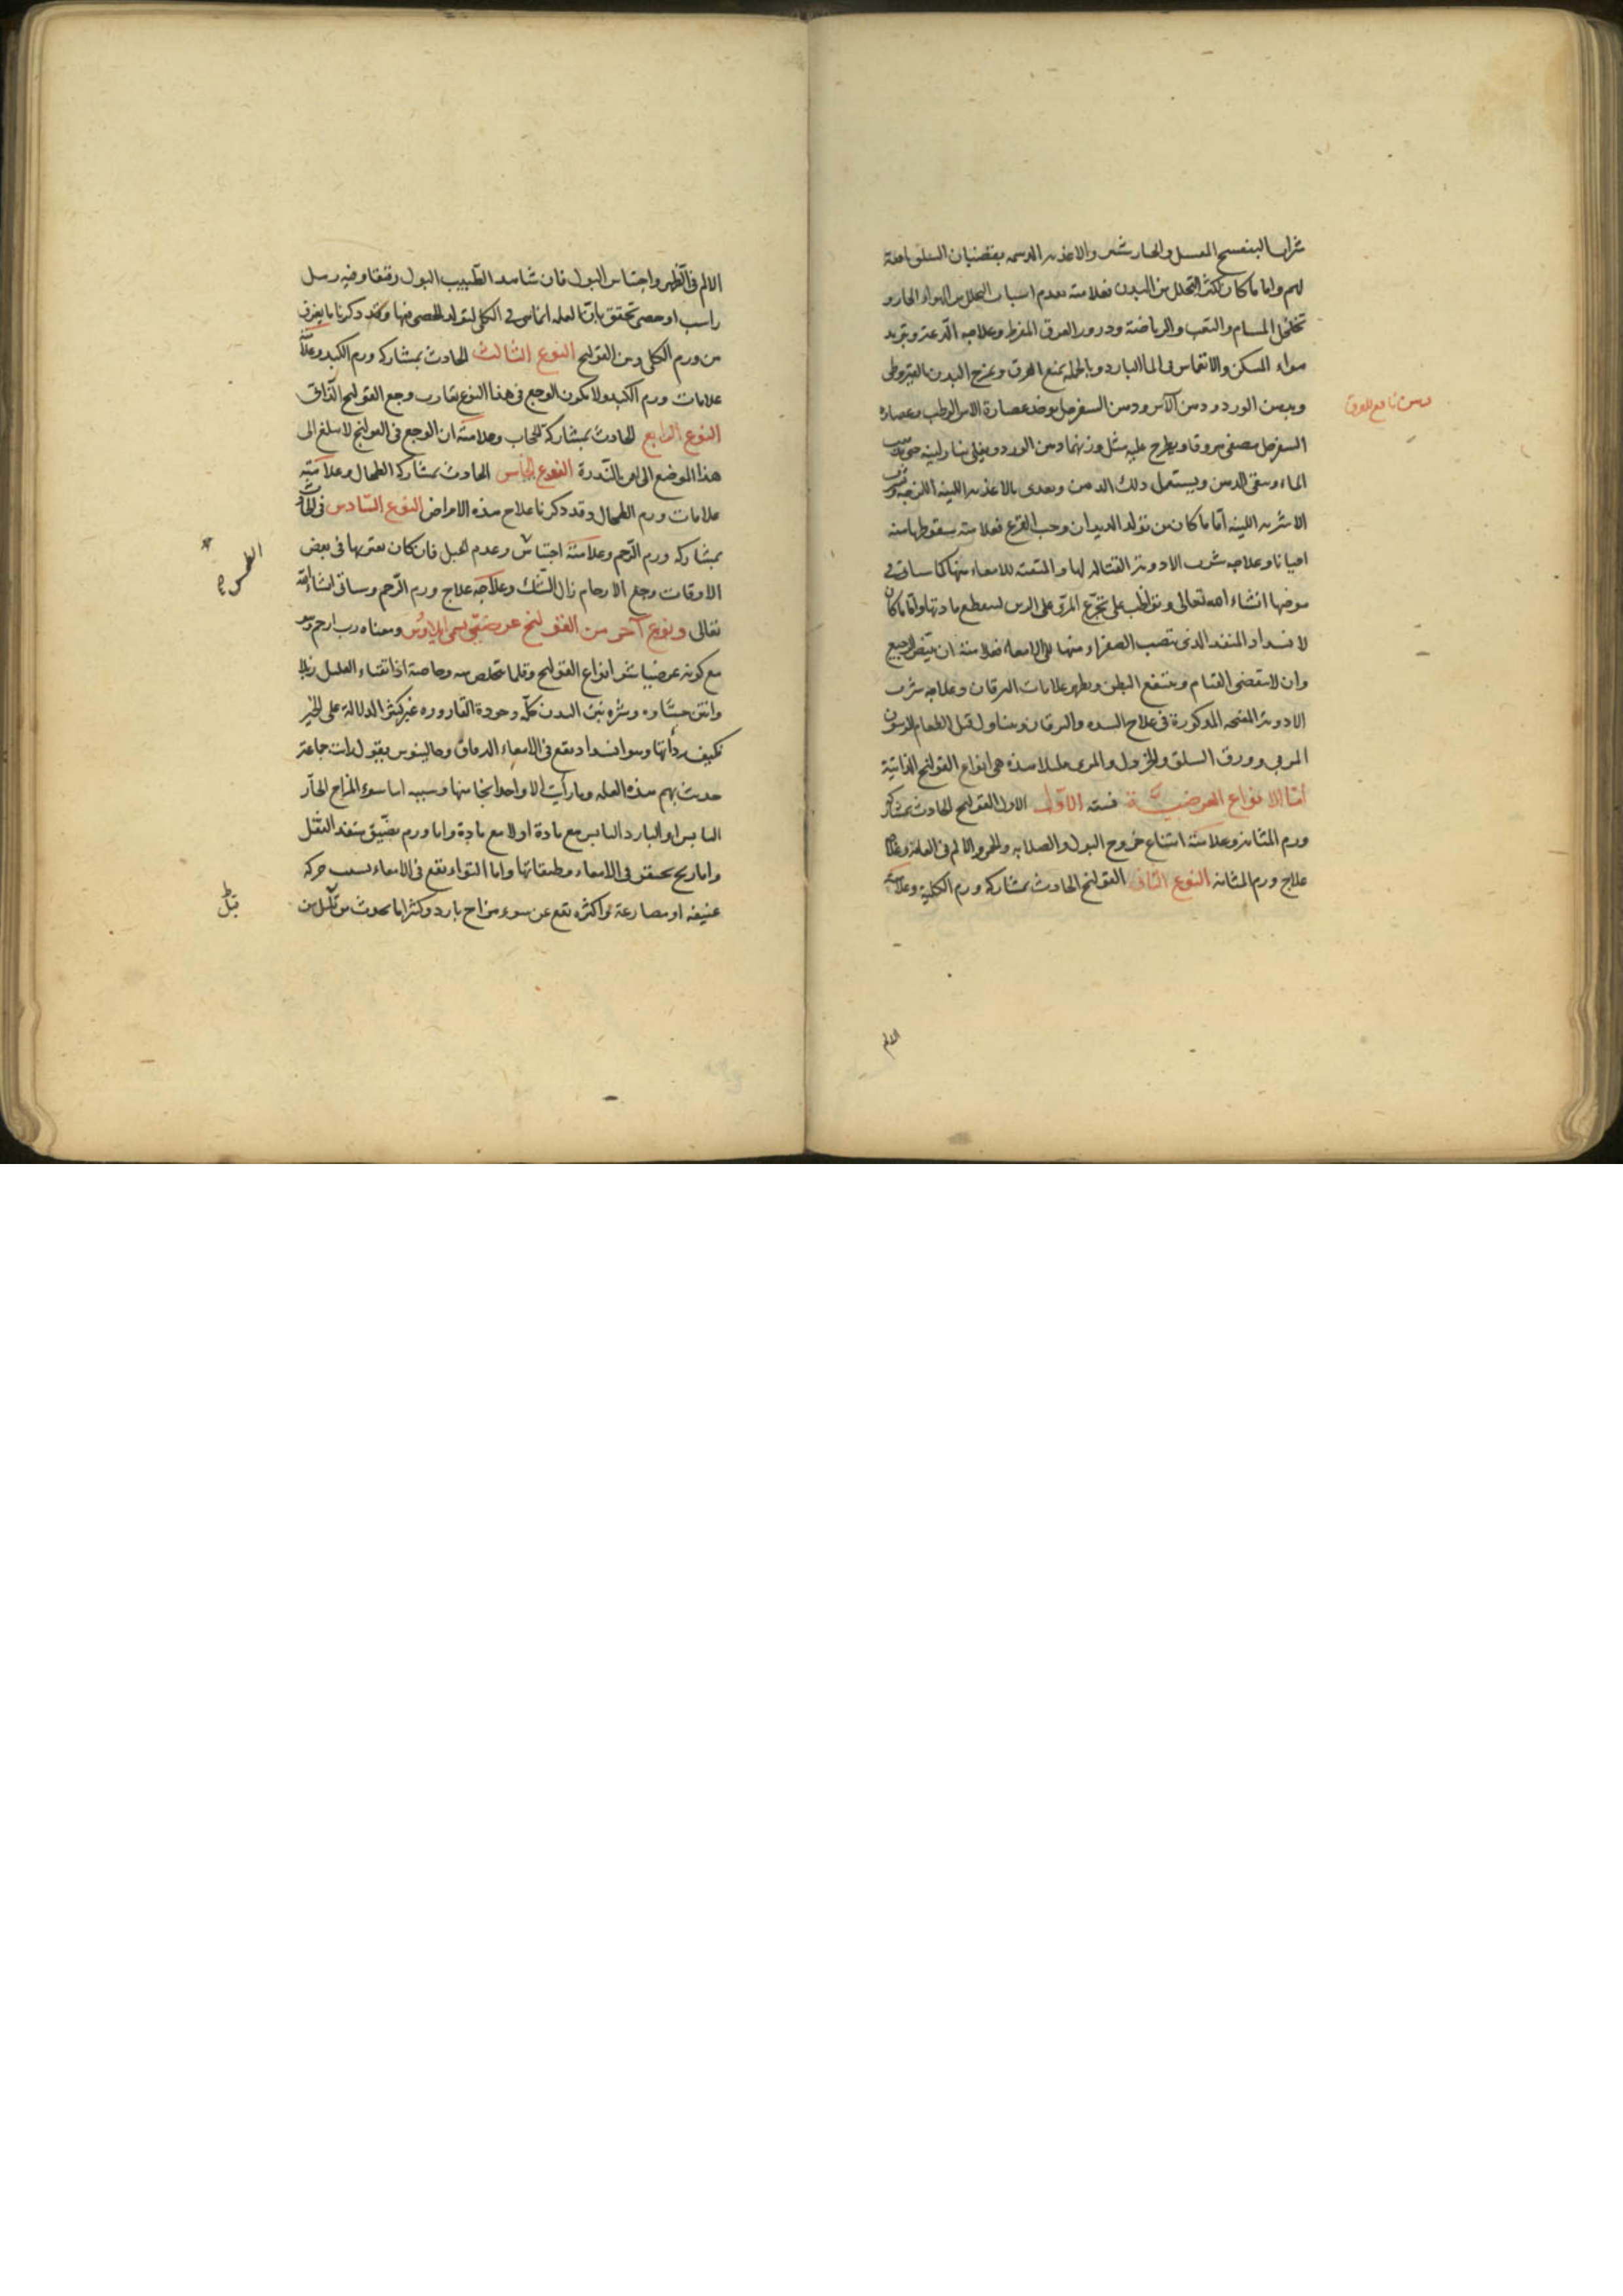 شراب البنفسج المعسل والخيارشنبر والاغذية الدسمة
لهم واما ما كان لكثرة التحلل من البدن فعلامته تقدم اسباب التحلل من الهواء الحار و
تخلخل المسام والتعب والرياضة ودرور العرق المفرط وعلاجه الدعة وتبريد
هواء المسكن والانغماس في الماء البارد وبالجملة يمنع العرق ويمرخ البدن بالقيروطي
دهن نافع للعرق
وبدهن الورد ودهن الآس ودهن السفرجل يوخذ عصارة الاس الرطب وعصارة
السفرجل مصفى مروقا ويطرح عليه مثل وزنهما دهن الورد ويغلى بنار لينة حتى يذهب
الماء وبقى الدهن ويستعمل ذلك الدهن ويغذى بالاغذية اللينة اللزجة
الاشربة اللينة اما ما كان من تولد الديدان وحب القرع فعلامته سقوطها منه
احيانا وعلاجه شرب الادوية القتالة لها والمنقية للامعاء منها كما سياتى فى
موضعها انشاء الله تعالى ويواظب على تجرع المرى على الريق لينقطع مادتها واما ما كان
لانسداد المنفذ الذى تصب الصفراء منها الى الامعاء فعلامته ان يبيض الرجيع
وان لا ينقضى القيام وينتفخ البطن ويظهر علامات اليرقان وعلاجه شرب
الادوية المفتحة المذكورة فى علاج السدة واليرقان ويتناول قبل الطعام الزيتون
المربى وورق السلق والخردل والمرى هذه هى انواع القولنج الذاتية
أمّا الانواع العرضيّة فستة الاول الاول القولنج الحادث بمشاركة
ورم المثانة وعلامته امتناع خروج البول والصلابة والحر والالم فى العانة وعلاجه
علاج ورم المثانة النوع الثانى القولنج الحادث بمشاركة ورم الكلية وعلامته
الالم
الالم فى الظهر واحتباس البول فان شاهد الطبيب البول رقيقا وفيه رمل
راسب او حصى تحقق بان العلة انما هى فى الكلى لتولد الحصى فيها وقد ذكرنا ما يفرق
من ورم الكلى ومن القولنج النوع الثالث الحادث بمشاركة ورم الكبد وعلامته
علامات ورم الكبد ولا يكون الوجع فى هذا النوع يقارب وجع القولنج الذاتى
النوع الرابع الحادث بمشاركة الحجاب وعلامته ان الوجع فى القولنج لا يبلغ الى
هذا الموضع الا بالندرة النوع الخامس الحادث بمشاركة الطحال وعلامته
علامات ورم الطحال وقد ذكرنا علاج هذه الامراض النوع السادس
بمشاركة ورم الرحم وعلامته احتباس وعدم الحبل فان كان يعتريها فى بعض
الطمث
الاوقات وجع الارحام زال الشك وعلاجه علاج ورم الرحم وسياتى انشاء الله
تعالى ونوع آخر من القولنج عرضيّ يسمى ايلاوُس ومعناه رب ارحم وهو
مع كونه عرضيا شر انواع القولنج وقلما يتخلص منه وخاصة اذا تقياء العليل زبلا
وانتن جشاوه ونتن البدن كله وجودة القارورة غير كثير الدلالة على الخير
فكيف رداتها وهو انسداد يقع فى الامعاء الدقاق وجالينوس يقول رايت جماعة
حدث بهم هذه العلة وما رأيت الا واحدا نجا منها وسببه اما سوء المزاج الحار
اليابس او البارد اليابس مع مادة او لا مع مادة واما ورم يضيق منفذ الثفل
واما ريح يحتقن فى الامعاء وطبقاتها واما التواء يقع فى الامعاء بسبب حركة
عنيفة او مصارعة واكثره يقع عن سوء مزاج بارد وكثيرا ما يحدث من